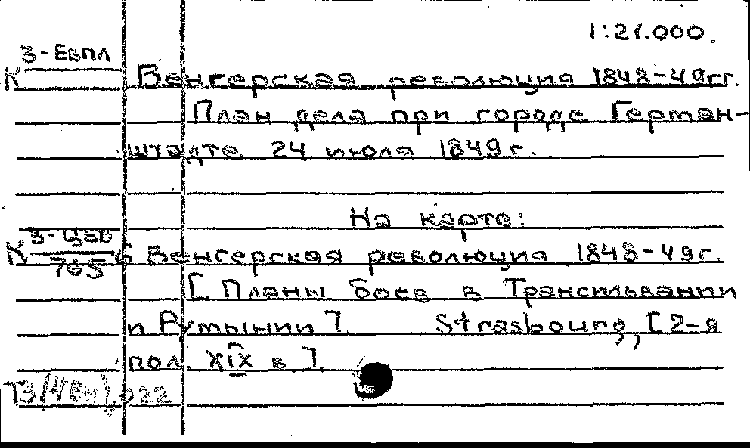 1:21.000.
К 3-Евпл
Венгерская революция 1848-49гг.
План дела при городе Герман-
штадте 24 июля 1849г.
На карте:
К 3-ЦЕВ/765 6 Венгерская революция 1848-49г.
[Планы боев в Трансильвании
и Румынии]. Strasbourg, [2-я
пол. XIX в].